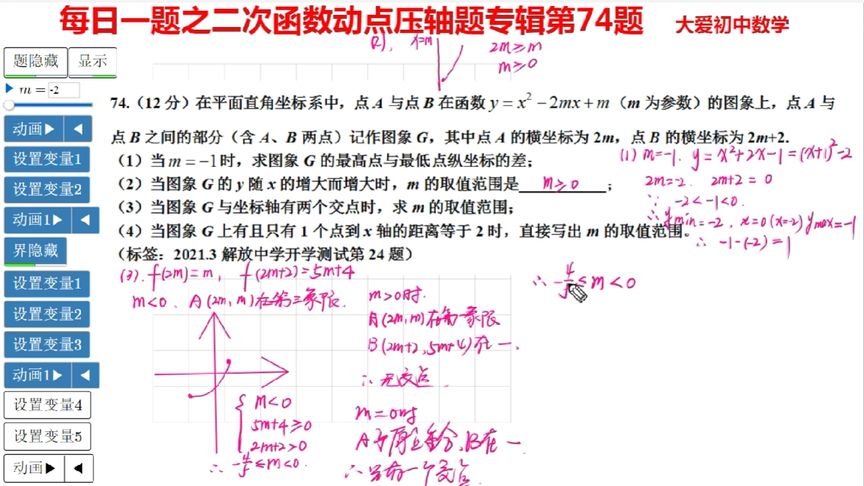 每日一题之二次函数动点压轴题专辑第74题
大爱初中数学
题隐藏 显示
m = -2
动画
设置变量1
设置变量2
动画1
界隐藏
设置变量1
设置变量2
设置变量3
动画1
设置变量4
设置变量5
动画
x=m
2m≥m
m≥0
74.（12 分）在平面直角坐标系中，点 A 与点 B 在函数 y = x² − 2mx + m（m 为参数）的图象上，点 A 与
点 B 之间的部分（含 A、B 两点）记作图象 G，其中点 A 的横坐标为 2m，点 B 的横坐标为 2m+2.
（1）当 m = −1 时，求图象 G 的最高点与最低点纵坐标的差；
（2）当图象 G 的 y 随 x 的增大而增大时，m 的取值范围是 m≥0 ；
（3）当图象 G 与坐标轴有两个交点时，求 m 的取值范围；
（4）当图象 G 上有且只有 1 个点到 x 轴的距离等于 2 时，直接写出 m 的取值范围。
（标签：2021.3 解放中学开学测试第 24 题）
(1) m=-1. y=x²+2x-1=(x+1)²-2
2m=-2. 2m+2=0
∵ -2<-1<0.
∴ ymin=-2, x=0(x=-2) ymax=-1
∴ -1-(-2)=1
(3). f(2m)=m, f(2m+2)=5m+4
m<0. A(2m,m)在第三象限.
m<0
5m+4≥0
2m+2>0
∴ -4/5≤m<0.
m>0时.
A(2m,m)在第一象限
B(2m+2,5m+4)在一.
∴无交点.
m=0时
B在一
∴只有一个交点.
∴ -4/5≤m<0